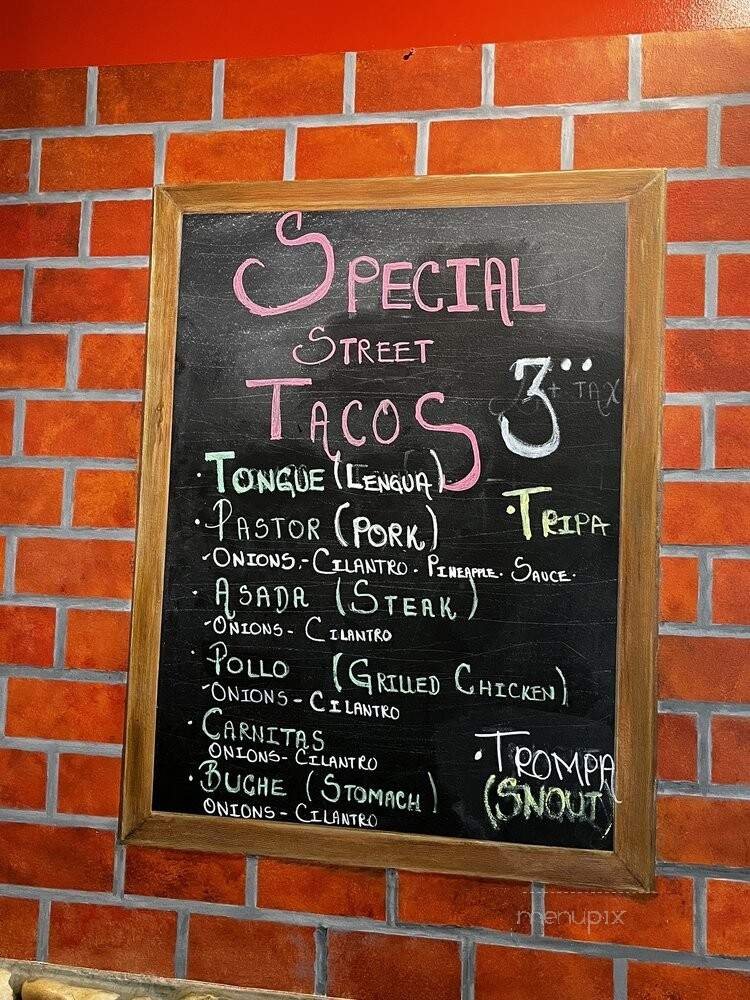 SPECIAL
STREET
TACOS
3¨ + TAX
· TONGUE (LENGUA)
· TRIPA
· PASTOR (PORK)
- ONIONS - CILANTRO · PINEAPPLE · SAUCE ·
· ASADA (STEAK)
- ONIONS - CILANTRO
· POLLO (GRILLED CHICKEN)
- ONIONS - CILANTRO
· CARNITAS
ONIONS - CILANTRO
· BUCHE (STOMACH)
ONIONS - CILANTRO
· TROMPA
(SNOUT)
menupix